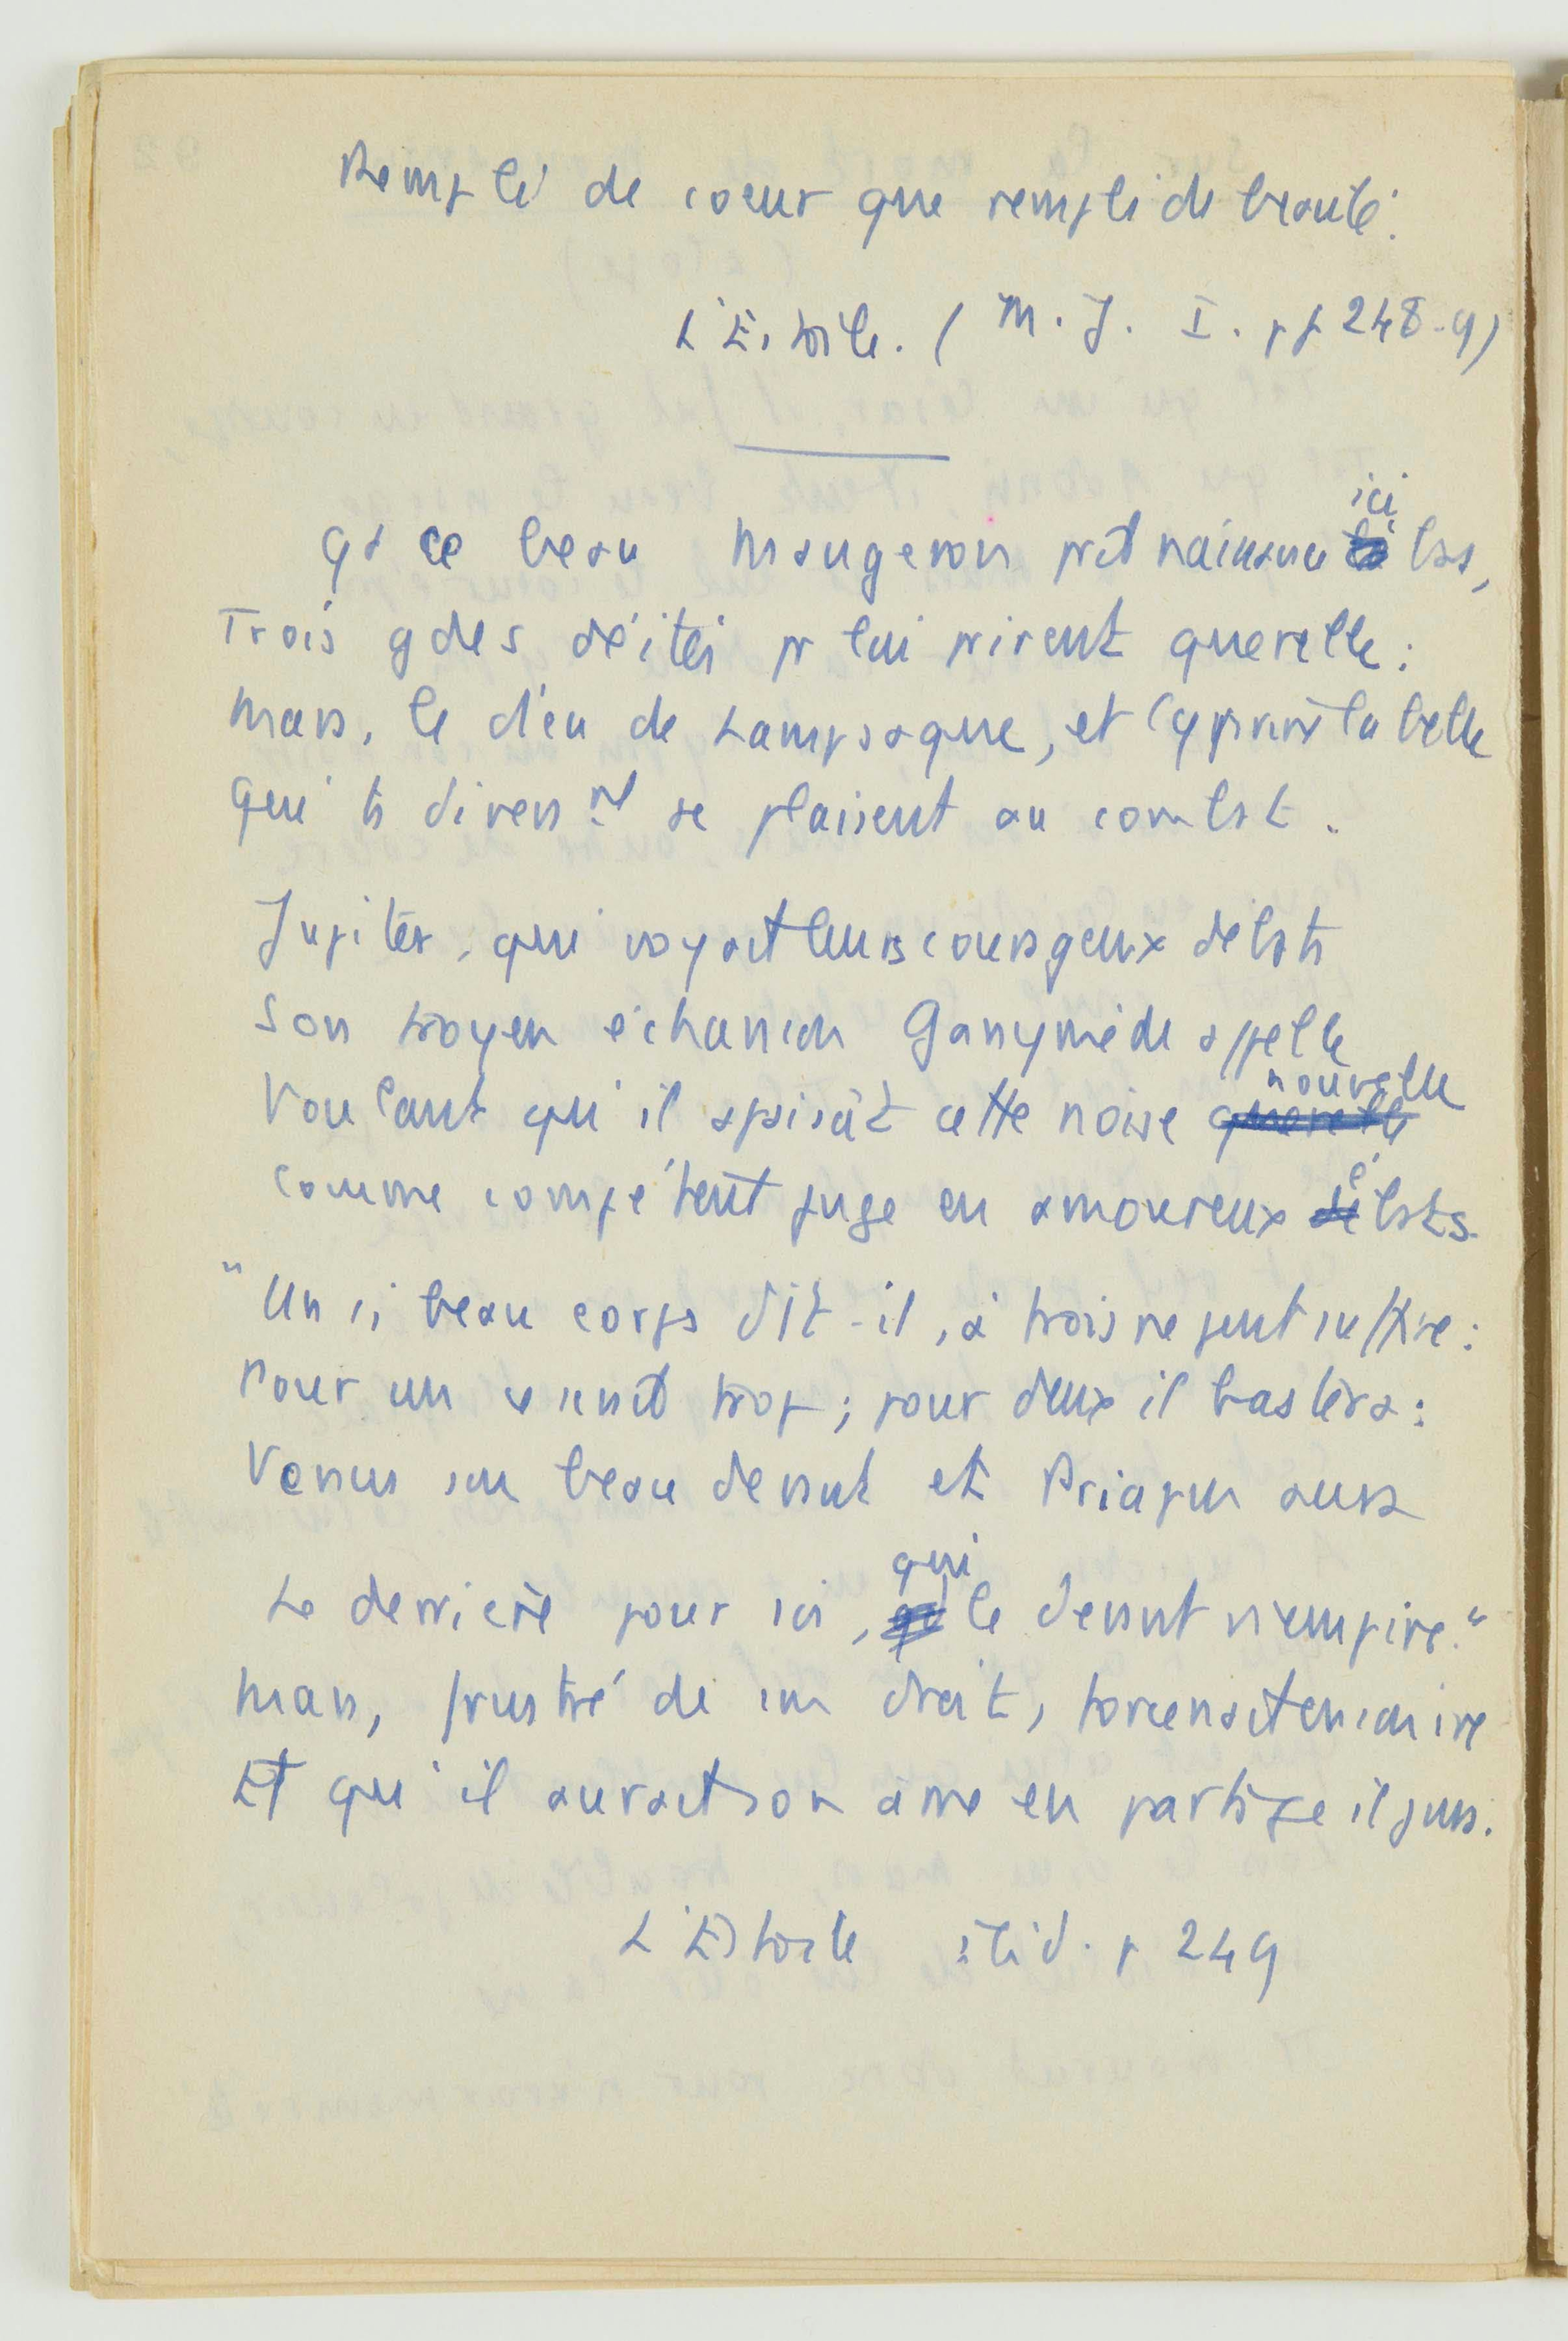 Rempli de coeur que rempli de beauté.
L'Estoile. (M. J. I. pp 248-9)
Qd ce beau Maugeron prit naissance ici bas,
Trois gdes déités pr lui prirent querelle :
Mars, le dieu de Lampsaque, et Cyprine la belle
Qui ts diversmt se plaisent au combat.
Jupiter, qui voyait leurs courageux débats
Son troyen échanson Ganymède appelle
Voulant qu'il apaisât cette noise querelle nouvelle
Comme compétent juge en amoureux ébats.
"Un si beau corps dit-il, à trois ne peut suffire :
Pour un ce serait trop ; pour deux il bastera :
Vénus son beau devant et Priapus aura
Le derrière pour soi, qui le devant n'empire."
Mars, frustré de son droit, forcenait en son ire
Et qu'il aurait son âme en partage il jura.
L'Estoile ibid. p 249